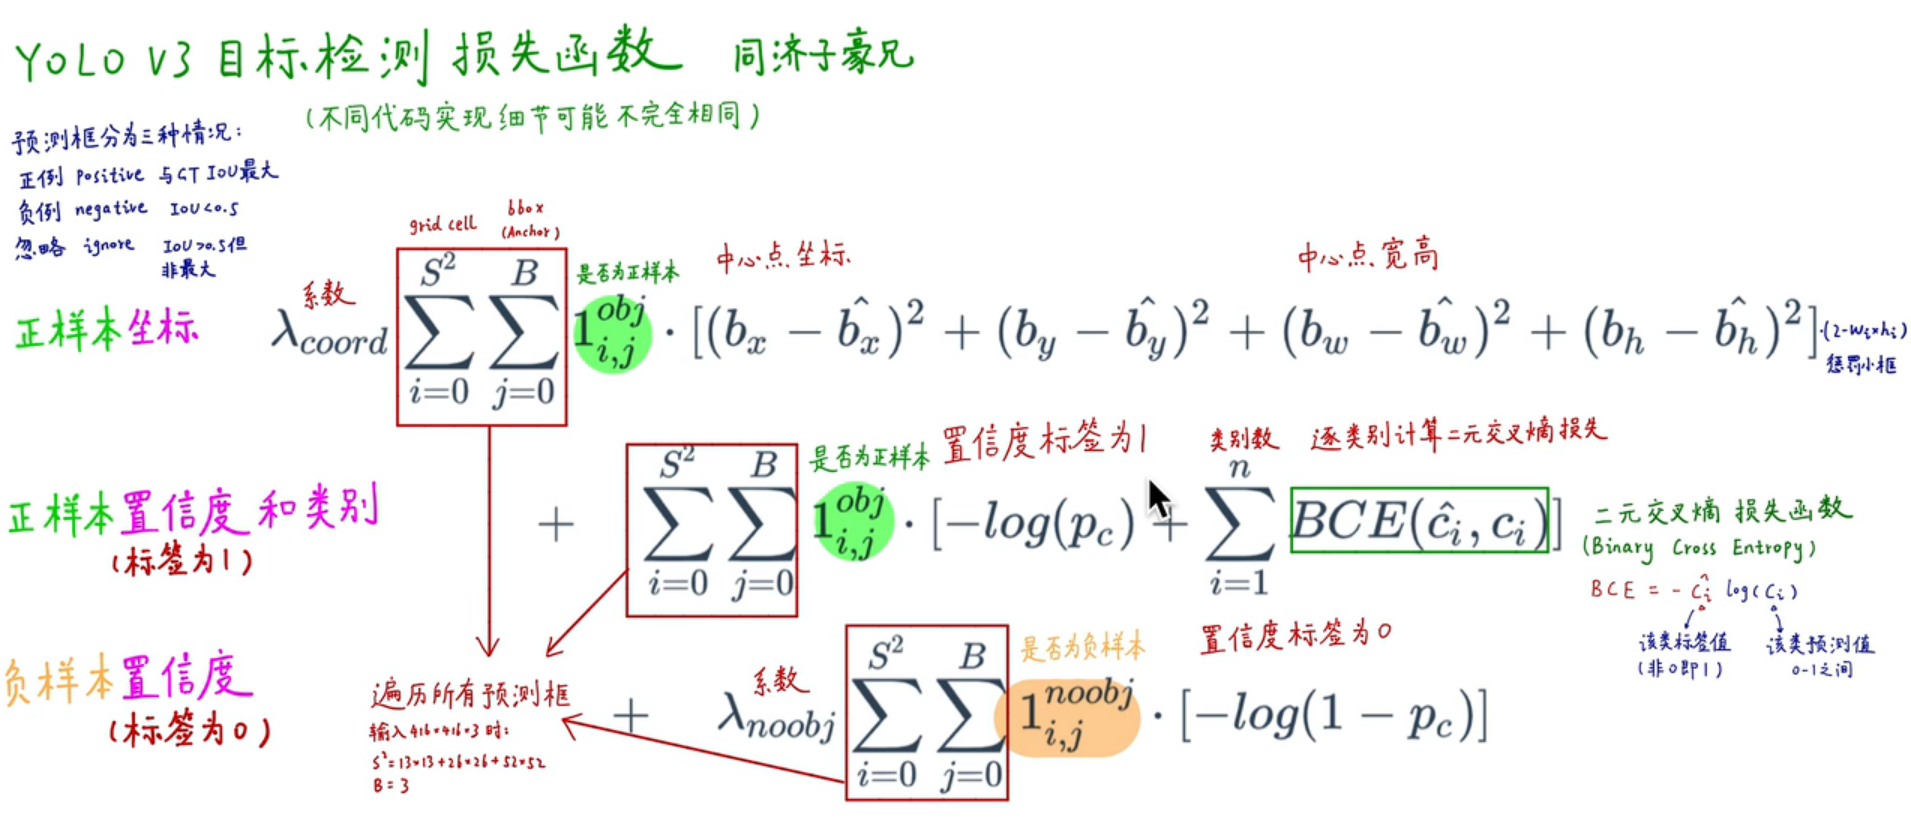 YOLO V3 目标检测 损失函数 同济子豪兄
(不同代码实现细节可能不完全相同)
预测框分为三种情况:
正例 positive 与GT IoU最大
负例 negative IoU<0.5
忽略 ignore IoU>0.5但
非最大
grid cell
bbox
(Anchor)
正样本坐标
系数
是否为正样本
中心点坐标
中心点宽高
λ_coord ∑_{i=0}^{S²} ∑_{j=0}^{B} 1_{i,j}^{obj} · [(b_x − \hat{b_x})² + (b_y − \hat{b_y})² + (b_w − \hat{b_w})² + (b_h − \hat{b_h})²]·(2-wᵢ×hᵢ)
惩罚小框
正样本置信度和类别
(标签为1)
是否为正样本
置信度标签为1
类别数
逐类别计算二元交叉熵损失
+ ∑_{i=0}^{S²} ∑_{j=0}^{B} 1_{i,j}^{obj} · [−log(p_c) + ∑_{i=1}^{n} BCE(ĉ_i, c_i)]
二元交叉熵 损失函数
(Binary Cross Entropy)
BCE = - ĉᵢ log(cᵢ)
该类标签值
(非0即1)
该类预测值
0-1之间
负样本置信度
(标签为0)
系数
是否为负样本
置信度标签为0
+ λ_noobj ∑_{i=0}^{S²} ∑_{j=0}^{B} 1_{i,j}^{noobj} · [−log(1 − p_c)]
遍历所有预测框
输入416×416×3时:
S²=13×13+26×26+52×52
B=3